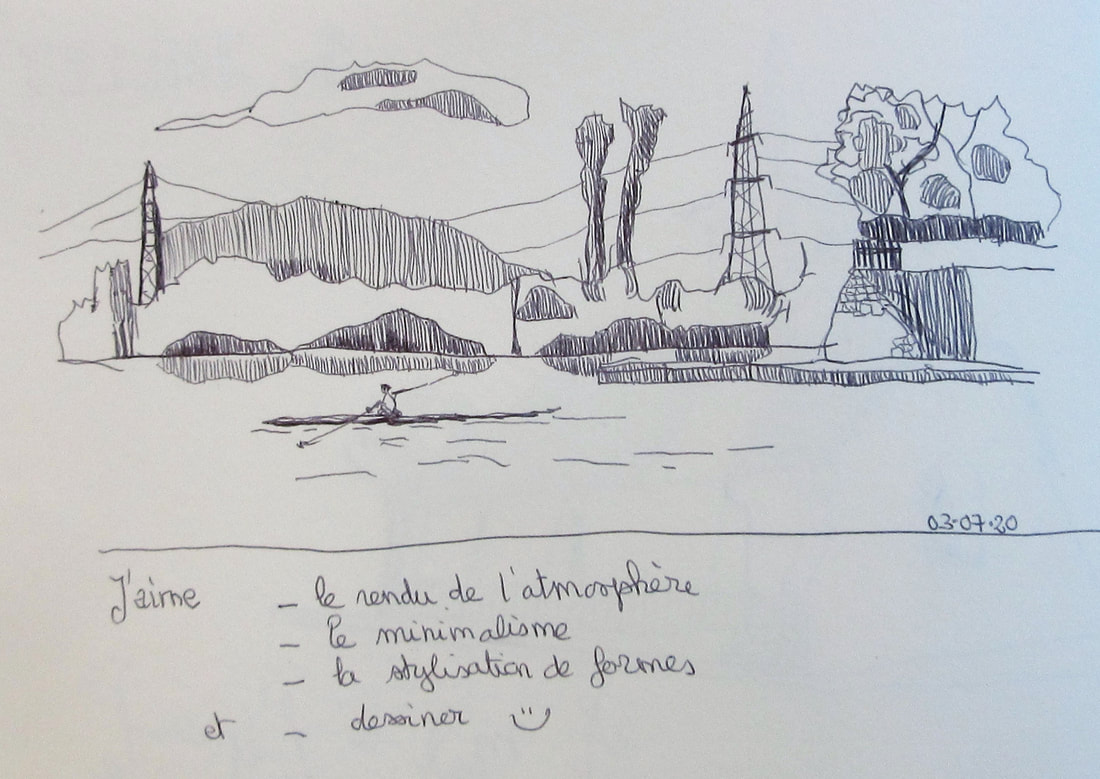 03-07-20
J'aime - le rendu de l'atmosphère
- le minimalisme
- la stylisation de formes
et - dessiner